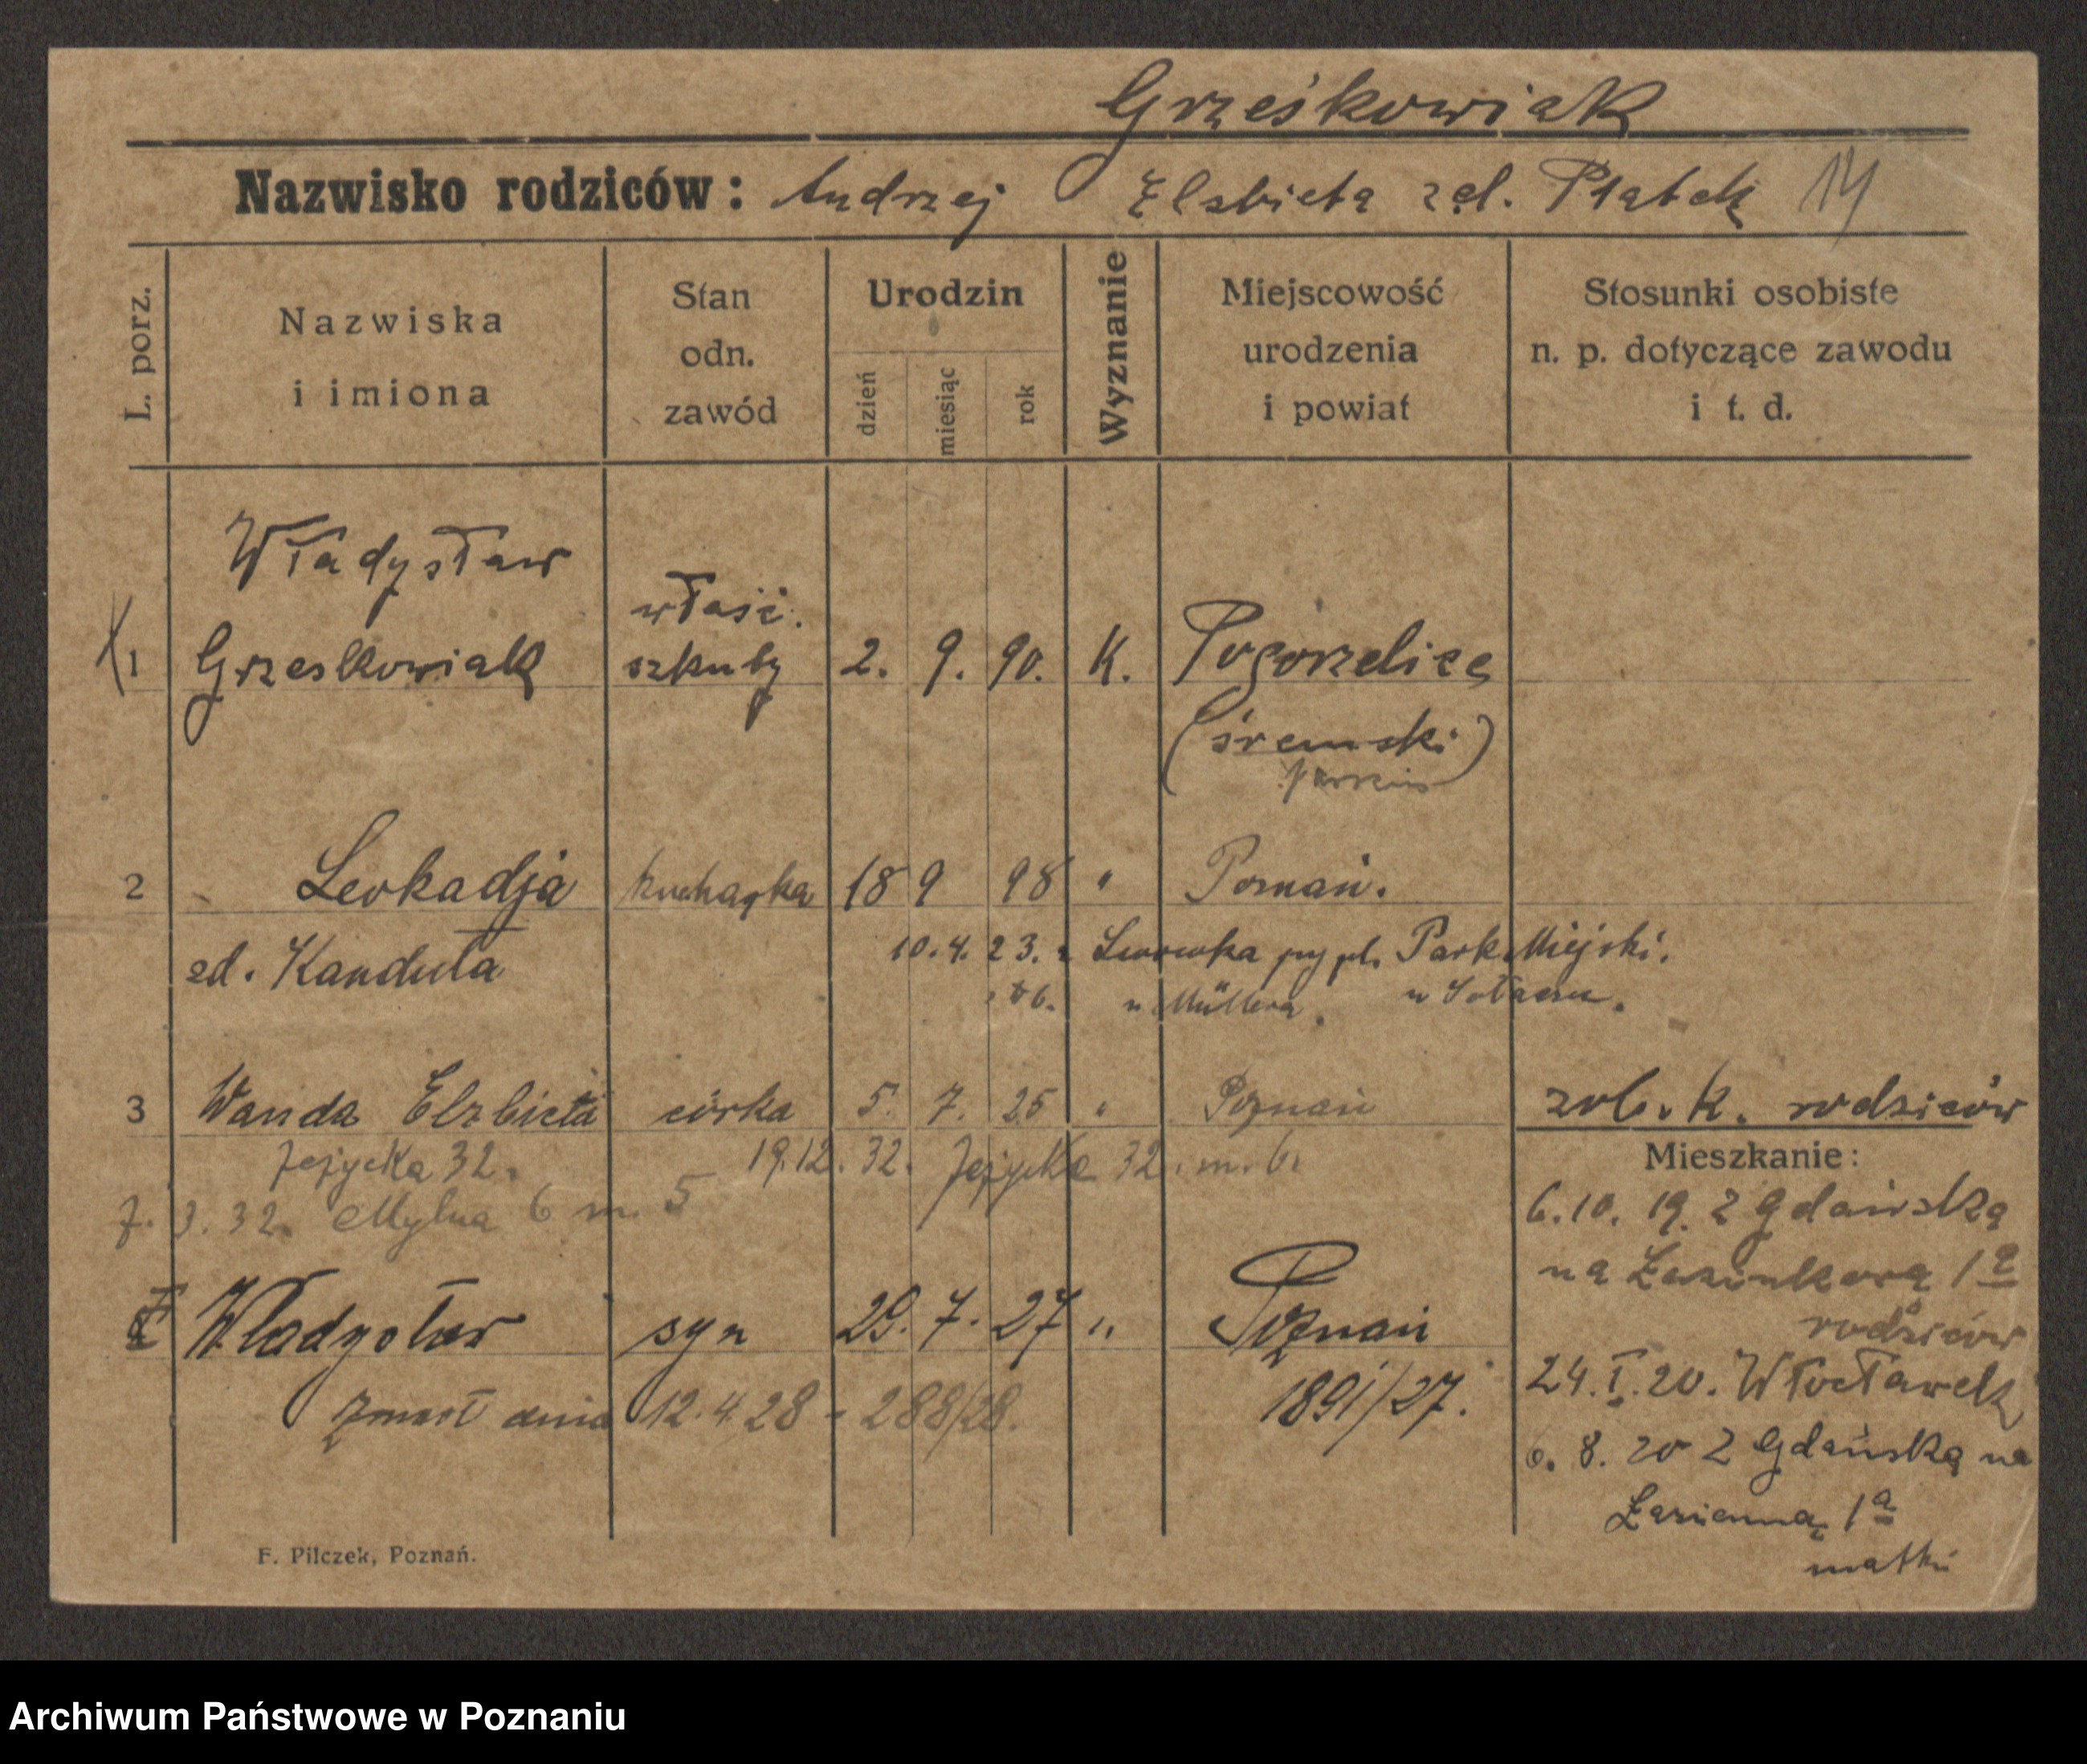 Grześkowiak
Nazwisko rodziców: Andrzej Elsbieta zd. Piątek 14
L. porz.
Nazwiska
i imiona
Stan
odn.
zawód
Urodzin
dzień
miesiąc
rok
Wyznanie
Miejscowość
urodzenia
i powiat
Stosunki osobiste
n. p. dotyczące zawodu
i t. d.
Władysław
właść.
1 Grzeskowiak szkuty 2. 9. 90. K. Pogorzelice
(śremski)
2 Leokadja kucharka 18 9 98 " Poznań.
zd. Kanduła
10.4.23. z Lwowka Park Miejski.
u Müllera w Sołaczu.
3 Wanda Elzbieta córka 5. 7. 25 " Poznań zob. k. rodziców
Jeżycka 32. 19.12.32. Jeżycka 32. m. 6.
7. 3. 32. Mylna 6 m. 5
Mieszkanie:
6.10.19. z Gdańska
na 1a
rodziców
Władysław syn 29. 7. 27 " Poznań
1891/27.
Zmarł dnia 12.4.28 - 288/28.
24.I.20. Włocławek
6. 8. 20 z Gdańska na
Łazienną 1a
matki
F. Pilczek, Poznań.
Archiwum Państwowe w Poznaniu